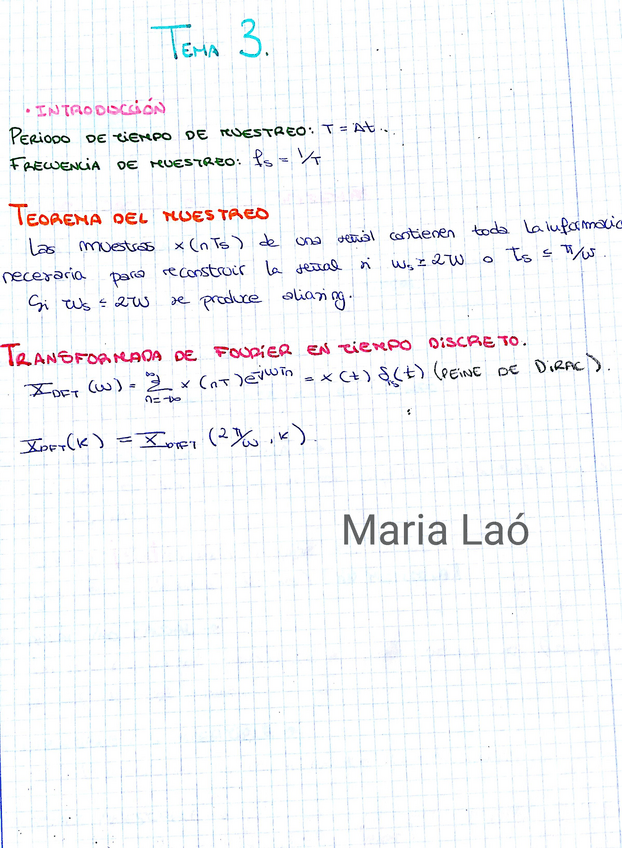 TEMA 3.
• INTRODUCCIÓN
PERIODO DE TIEMPO DE MUESTREO: T = Δt..
FRECUENCIA DE MUESTREO: fs = 1/T
TEOREMA DEL MUESTREO
Las muestras x(nTs) de una señal contienen toda la informació
necesaria para reconstruir la señal si ws ≥ 2W o Ts ≤ π/W.
Si ws ≤ 2W se produce aliasing.
TRANSFORMADA DE FOURIER EN TIEMPO DISCRETO.
X_DFT (w) = ∑_{n=-∞}^{∞} x(nT) e^{-jwTn} = x(t) δ_Ts(t) (PEINE DE DIRAC).
X_DFT(K) = X_DTFT (2π/W . K).
Maria Laó